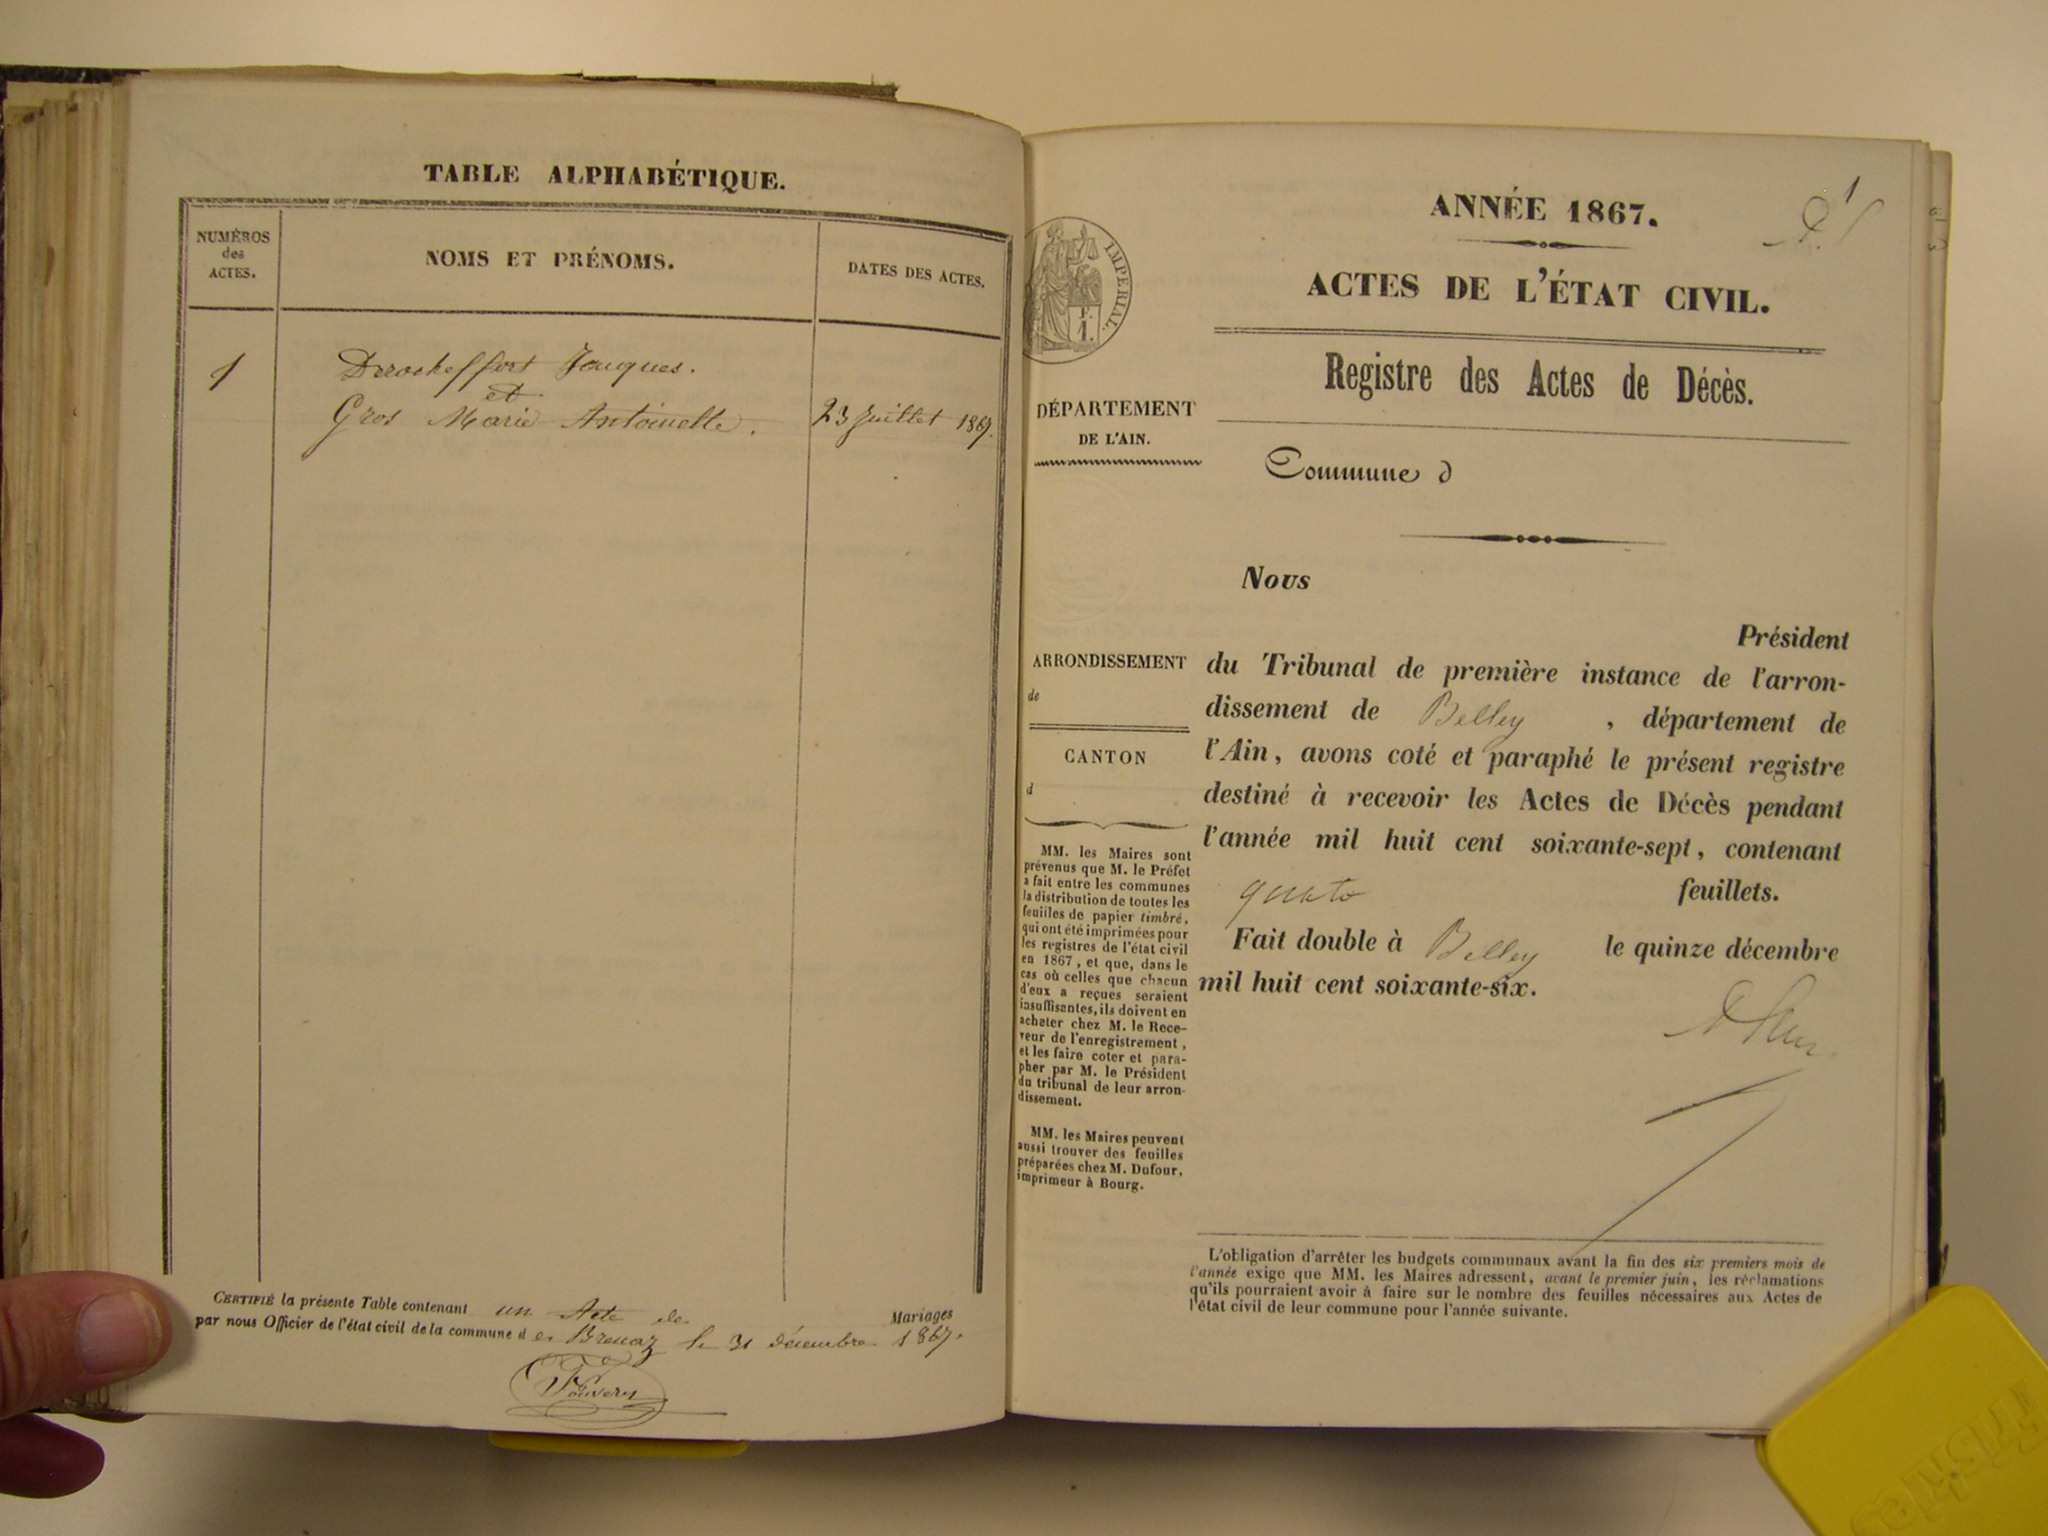 TABLE ALPHABÉTIQUE.
NUMÉROS
des
ACTES.
NOMS ET PRÉNOMS.
DATES DES ACTES.
1
Derocheffort Jacques.
et
Gros Marie Antoinette. 23 juillet 1867.
CERTIFIÉ la présente Table contenant un Acte de Mariages
par nous Officier de l'état civil de la commune d e Brenaz le 31 décembre 1867.
1
ANNÉE 1867.
ACTES DE L'ÉTAT CIVIL.
Registre des Actes de Décès.
IMPÉRIAL.
F.
1.
DÉPARTEMENT
DE L'AIN.
Commune d
ARRONDISSEMENT
de
CANTON
d
MM. les Maires sont
prévenus que M. le Préfet
a fait entre les communes
la distribution de toutes les
feuilles de papier timbré,
qui ont été imprimées pour
les registres de l'état civil
en 1867, et que, dans le
cas où celles que chacun
d'eux a reçues seraient
insuffisantes, ils doivent en
acheter chez M. le Rece-
veur de l'enregistrement,
et les faire coter et para-
pher par M. le Président
du tribunal de leur arron-
dissement.
MM. les Maires peuvent
aussi trouver des feuilles
préparées chez M. Dufour,
imprimeur à Bourg.
Nous
Président
du Tribunal de première instance de l'arron-
dissement de Belley, département de
l'Ain, avons coté et paraphé le présent registre
destiné à recevoir les Actes de Décès pendant
l'année mil huit cent soixante-sept, contenant
quatre feuillets.
Fait double à Belley le quinze décembre
mil huit cent soixante-six.
L'obligation d'arrêter les budgets communaux avant la fin des six premiers mois de
l'année exige que MM. les Maires adressent, avant le premier juin, les réclamations
qu'ils pourraient avoir à faire sur le nombre des feuilles nécessaires aux Actes de
l'état civil de leur commune pour l'année suivante.